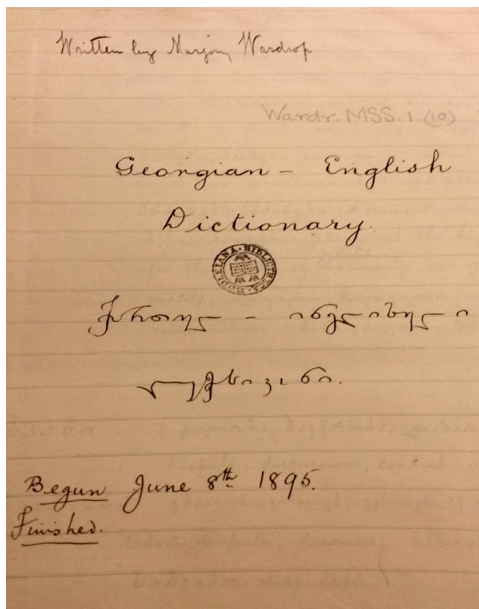 Written by Marjory Wardrop
Wardr. MSS. 1 (10)
Georgian - English
Dictionary.
BODLEIANA BIBLIOTHECA
ქართულ - ინგლისული
ლექსიკონი.
Begun June 8th 1895.
Finished.